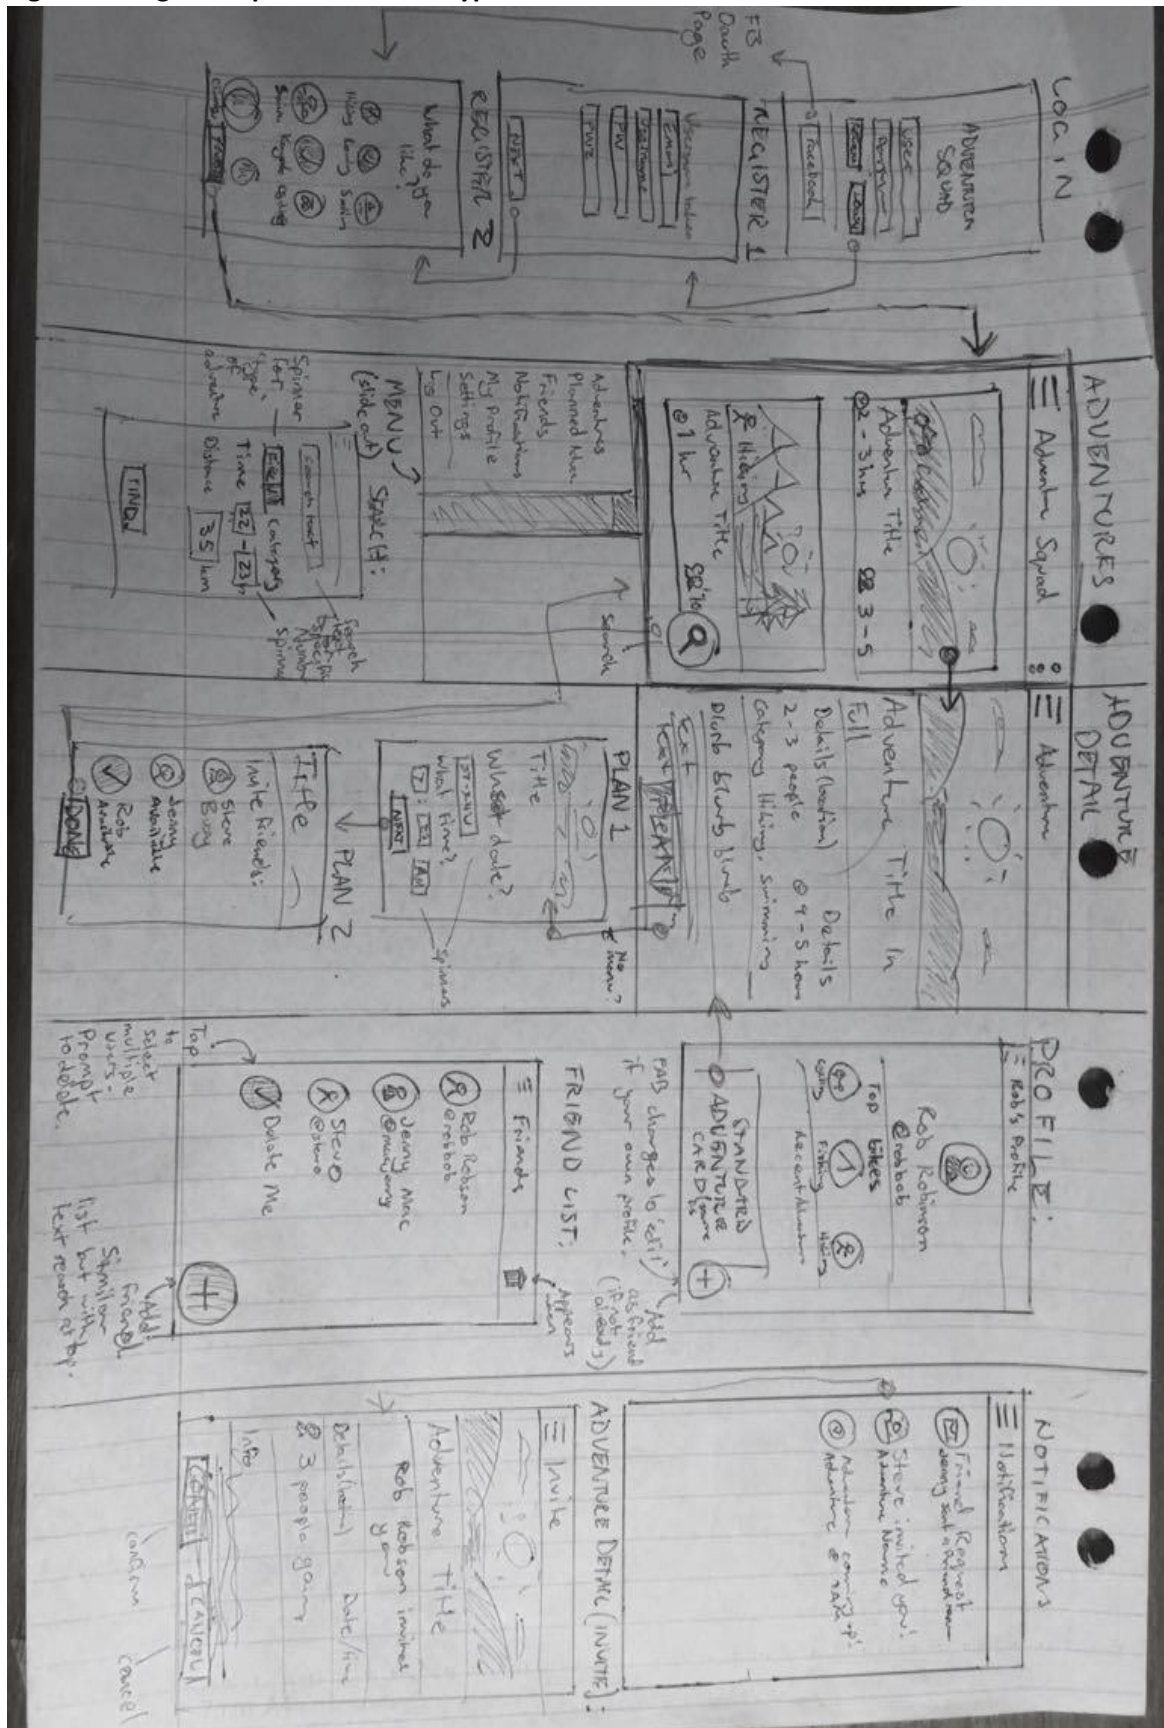 LOGIN
ADVENTURE
SQUAD
User
Facebook
FB
Oauth
Page
REGISTER 1
Username taken
Email
Username
PW
PW2
NEXT
REGISTER 2
What do you
like?
Kayak
ADVENTURES
Adventure Squad
Adventure Title
2-3 hrs
3-5
Hiking
Adventure Title
1 hr
Search
Adventures
Planned Adv.
Friends
Notifications
My Profile
Settings
Log Out
MENU
(slide out)
SEARCH:
Search text
Category
Time 22 - 23 h
Distance 35 km
FIND
Spinner
for
type
of
adventure
Search
text
specific
Number
Spinner
ADVENTURE
DETAIL
Adventure
Adventure Title In
Full
Details (location) Details
2-3 people 4-5 hours
Category Hiking, swimming
Blurb blurb blurb
text
PLAN
PLAN 1
No
menu?
Title
What date?
What time?
AM
NEXT
Spinners
PLAN 2
Title
Invite friends:
Steve
Busy
Jenny
Available
Rob
Available
DONE
PROFILE:
Rob's Profile
Rob Robinson
@robbob
Top Likes
Fishing
Hiking
Recent Adventures
STANDARD
ADVENTURE
CARD
FAB changes to 'edit'
if your own profile.
Add
as friend
(if not
already)
FRIEND LIST:
Friends
Appears
when
Rob Robson
@robbob
Jenny Mac
Stevo
@stevo
Delete Me
Tap
to
select
multiple
users -
Prompt
to delete.
Add
friend
Similar
list but with
text search at top.
NOTIFICATIONS
Notification
Friend Request
Jenny sent a friend
Steve invited you!
Adventure Name
Adventure coming up!
Adventure
ADVENTURE DETAIL (INVITE):
Invite
Adventure Title
Rob Robson invited
you
Details (location) Date/time
3 people going
Info
CANCEL
confirm
cancel